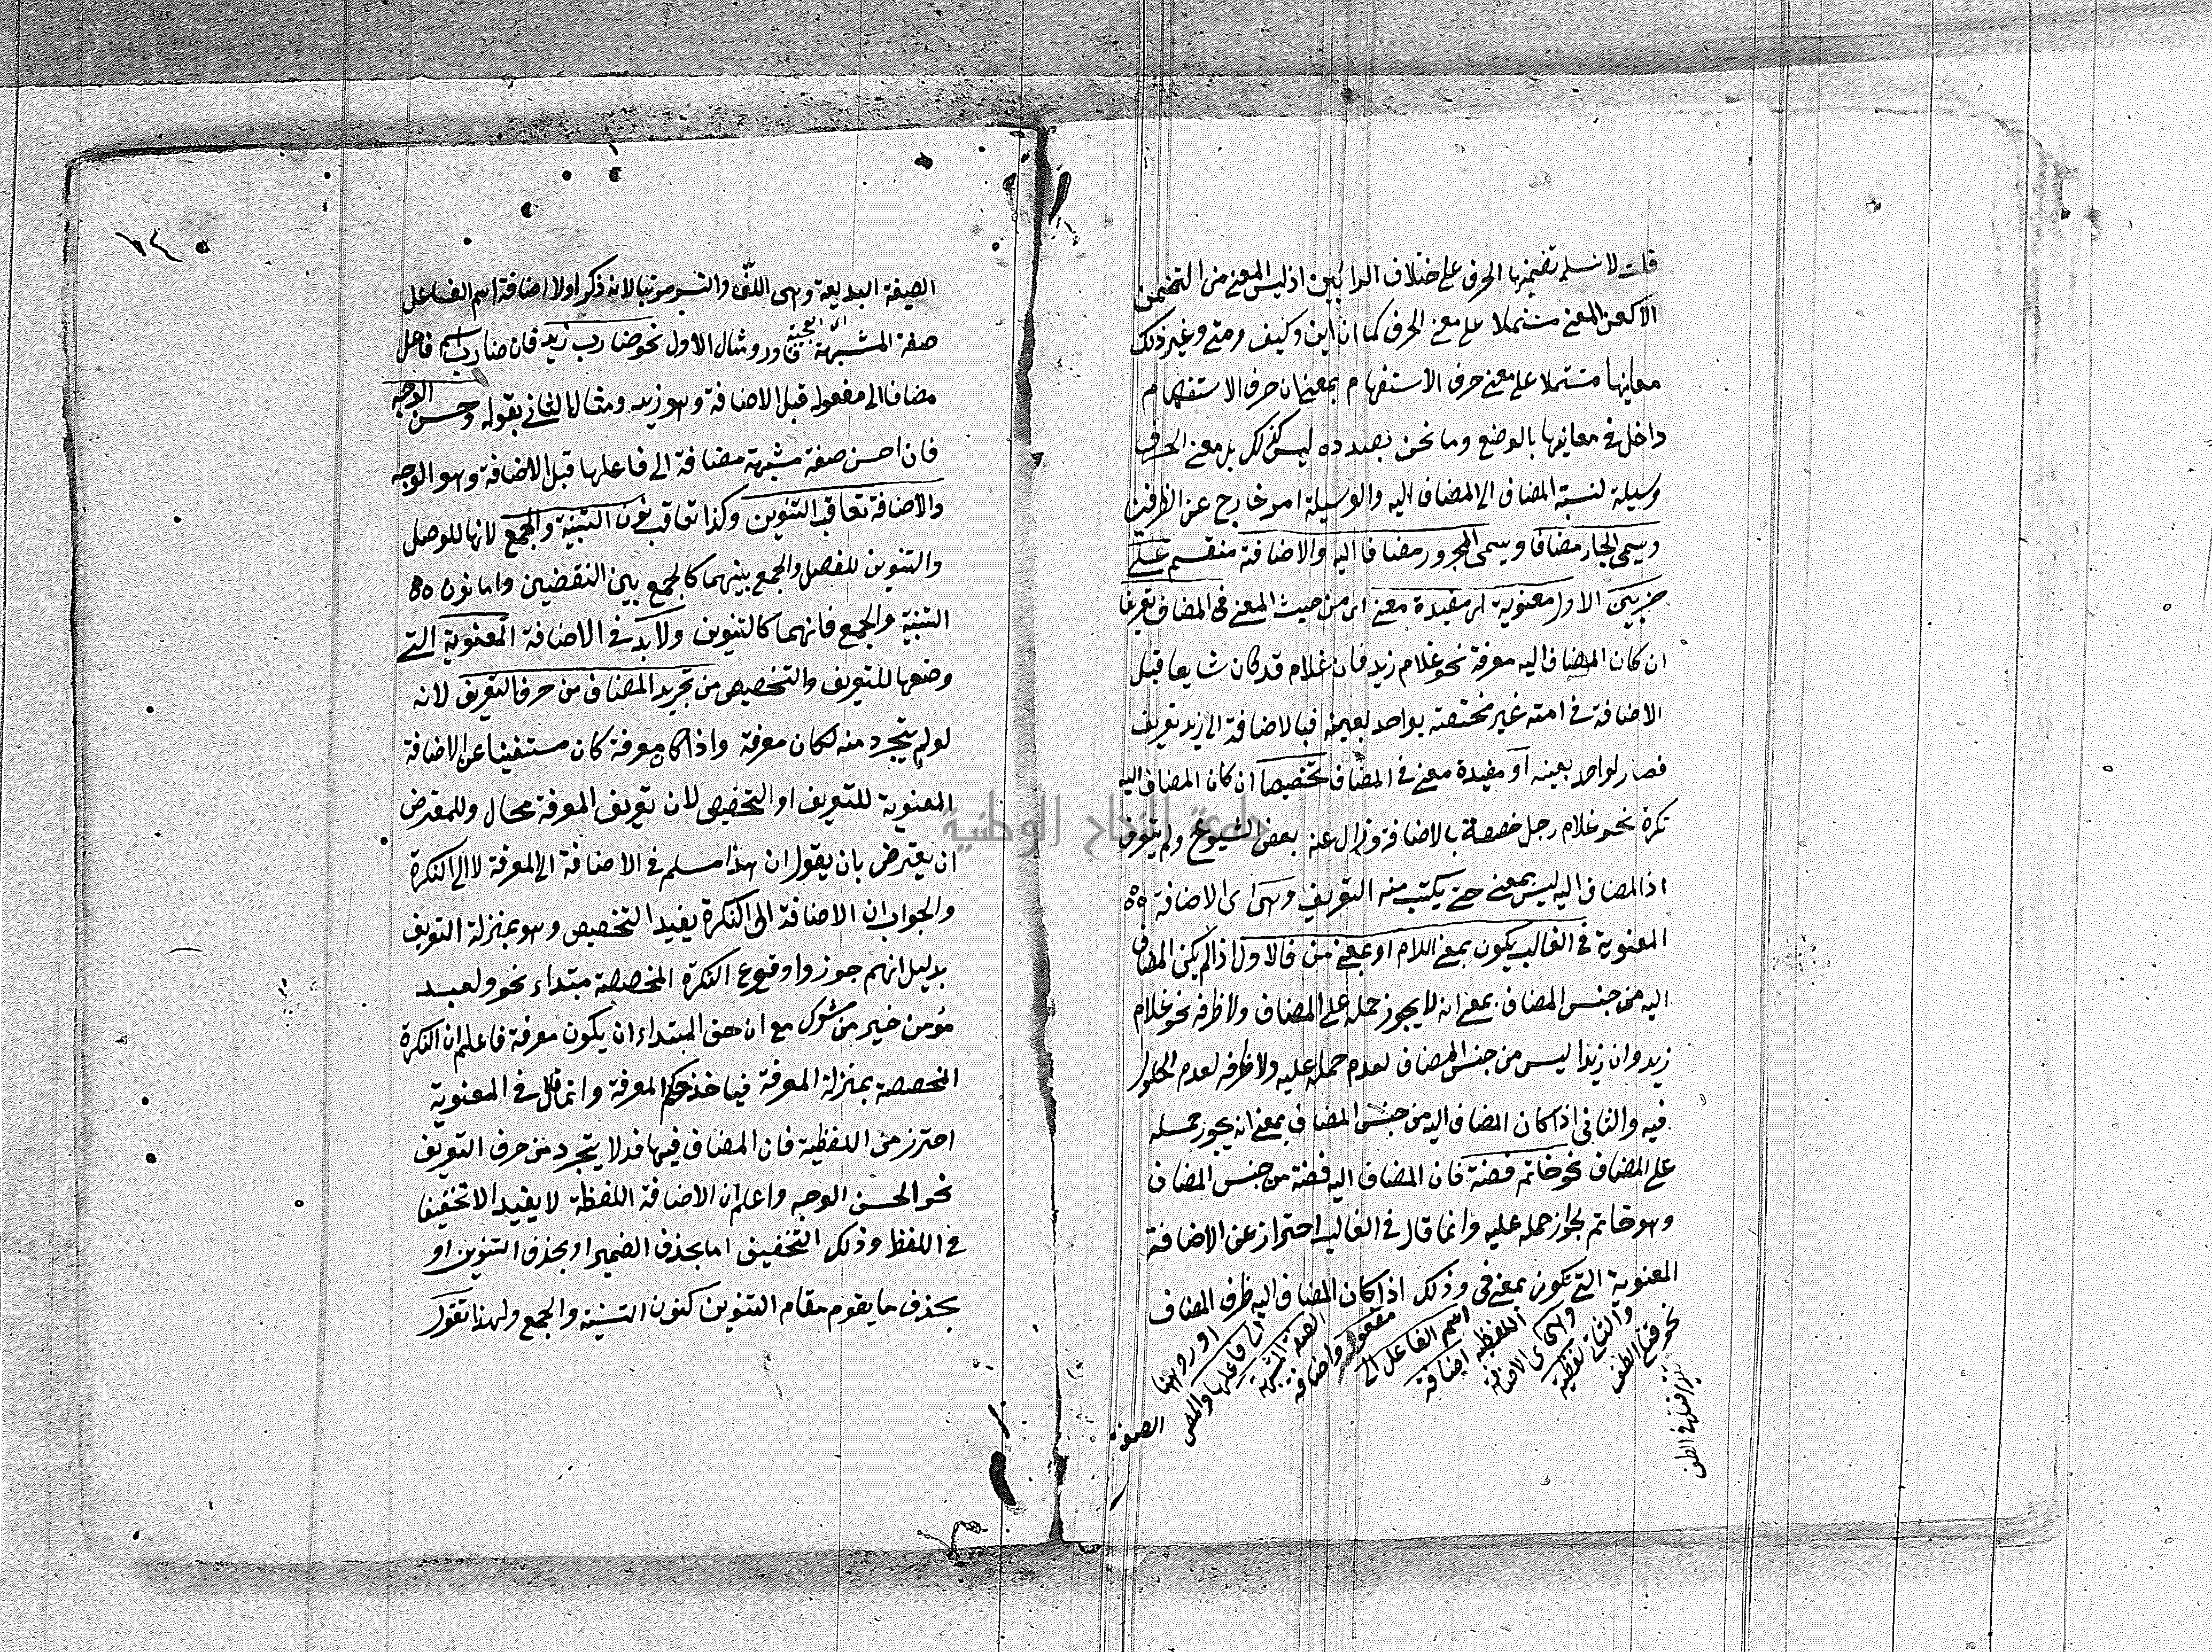 قلت لا نسلم تضمنها الحرف على ختلاف الرائيين اذ ليس المعنى من التضمن
الا كون المعنى مشتملا على معنى الحرف كما ان اين وكيف ومتى وغير ذلك
معانيها مشتملا على معنى حرف الاستفهام بمعنى ان حرف الاستفهام
داخل في معانيها بالوضع وما نحن بصدده ليس كذلك بل معنى الحرف
وسيلة لنسبة المضاف الى المضاف اليه والوسيلة امر خارج عن الطرفين
ويسمى الجار مضافا ويسمى المجرور مضافا اليه والاضافة منقسم على
ضربين الاول معنوية اى مفيدة معنى اى من حيث المعنى في المضاف تعريفا
ان كان المضاف اليه معرفة نحو غلام زيد فان غلام قد كان شايعا قبل
الاضافة في امته غير مختصة بواحد بعينه فبالاضافة الى زيد تعريف
فصار لواحد بعينه او مفيدة معنى في المضاف تخصيصا ان كان المضاف اليه
نكرة نحو غلام رجل خصصة بالاضافة وزال عنه بعض الشيوع ولم يتعرف
اذ المضاف اليه ليس بمعنى حتى يكتب منه التعريف وهى اى الاضافة
المعنوية في الغالب يكون بمعنى اللام او بمعنى من فالاول اذا لم يكن المضاف
اليه من جنس المضاف بمعنى انه لا يجوز حمله على المضاف ولا ظرفه نحو غلام
زيد وان زيدا ليس من جنس المضاف لعدم حمله عليه ولا ظرفه لعدم الحلول
فيه والثانى اذا كان المضاف اليه من جنس المضاف بمعنى انه يجوز حمله
على المضاف نحو خاتم فضة فان المضاف اليه فضة من جنس المضاف
وهو خاتم لجواز حمله عليه وانما قال في الغالب احتراز عن الاضافة
المعنوية التى تكون بمعنى في وذلك اذا كان المضاف اليه ظرف المضاف
نحو قتل الطف
اى قتل في الطف
والثانى لفظية
وهى اى الاضافة
اللفظية اضافة
اسم الفاعل الى
مفعوله واضافة
الصفة المشبهة
الى فاعلها والمص
اورد هنا
الصفة
١٢٥
الصيغة البديعة وهى اللف والنشر مرتبا لانه ذكر اولا اضافة اسم الفاعل
صفة المشبهة
اى العجيبة
فاورد مثال الاول نحو ضارب زيد فان ضارب اسم فاعل
مضاف الى مفعوله قبل الاضافة وهو زيد ومثال الثانى بقوله وحسن الوجه
فان احسن صفة مشبهة مضافة الى فاعلها قبل الاضافة وهو الوجه
والاضافة تعاقب التنوين وكذا تعاقب نون التثنية والجمع لانها للوصل
والتنوين للفصل والجمع بينهما كالجمع بين النقضين واما نون
التثنية والجمع فانهما كالتنوين ولا بد في الاضافة المعنوية التى
وضعها للتعريف والتخصيص من تجريد المضاف من حرف التعريف لانه
لو لم يتجرد منه لكان معرفة واذا كا معرفة كان مستغنيا عن الاضافة
المعنوية للتعريف او التخصيص لان تعريف المعرفة محال وللمعترض
ان يعترض بان يقول ان هذا مسلم في الاضافة الى المعرفة لا الى النكرة
والجواب ان الاضافة الى النكرة يفيد التخصيص وهو بمنزلة التعريف
بدليل انهم جوزوا وقوع النكرة المخصصة مبتداء نحو ولعبد
مؤمن خير من مشرك مع ان حق المبتداء ان يكون معرفة فاعلم ان النكرة
المخصصة بمنزلة المعرفة فياخذ حكم المعرفة وانما قال في المعنوية
احترز من اللفظية فان المضاف فيها قد لا يتجرد من حرف التعريف
نحو الحسن الوجه واعلم ان الاضافة اللفظة لا يفيد الا تخفيفا
في اللفظ وذلك التخفيف اما بحذف الضمير او بحذف التنوين او
بحذف ما يقوم مقام التنوين كنون التثنية والجمع ولهذا تقول
جامعة النجاح الوطنية